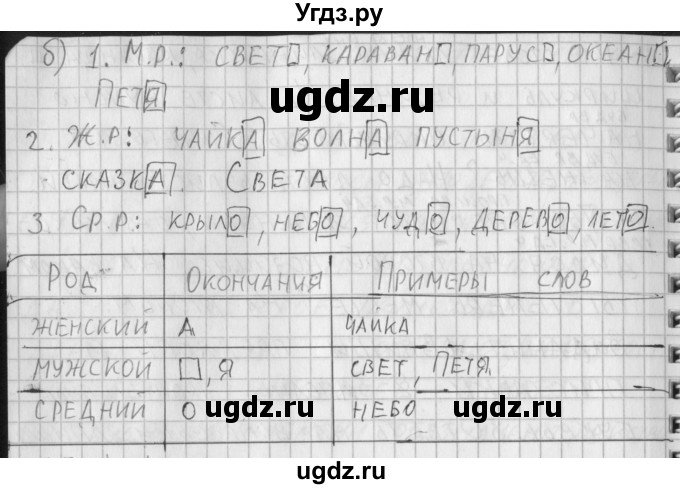 Угдз.ру
б) 1. М.Р.: СВЕТ□, КАРАВАН□, ПАРУС□, ОКЕАН□,
ПЕТЯ
ugdz.ru
2. Ж.Р: ЧАЙКА ВОЛНА ПУСТЫНЯ
СКАЗКА. СВЕТА
3. СР.Р.: КРЫЛО, НЕБО, ЧУДО, ДЕРЕВО, ЛЕТО.
РОД ОКОНЧАНИЯ ПРИМЕРЫ СЛОВ
ЖЕНСКИЙ А ЧАЙКА
МУЖСКОЙ □, Я СВЕТ, ПЕТЯ.
СРЕДНИЙ О ugdz.ru НЕБО ugdz.ru
ugdz.ru